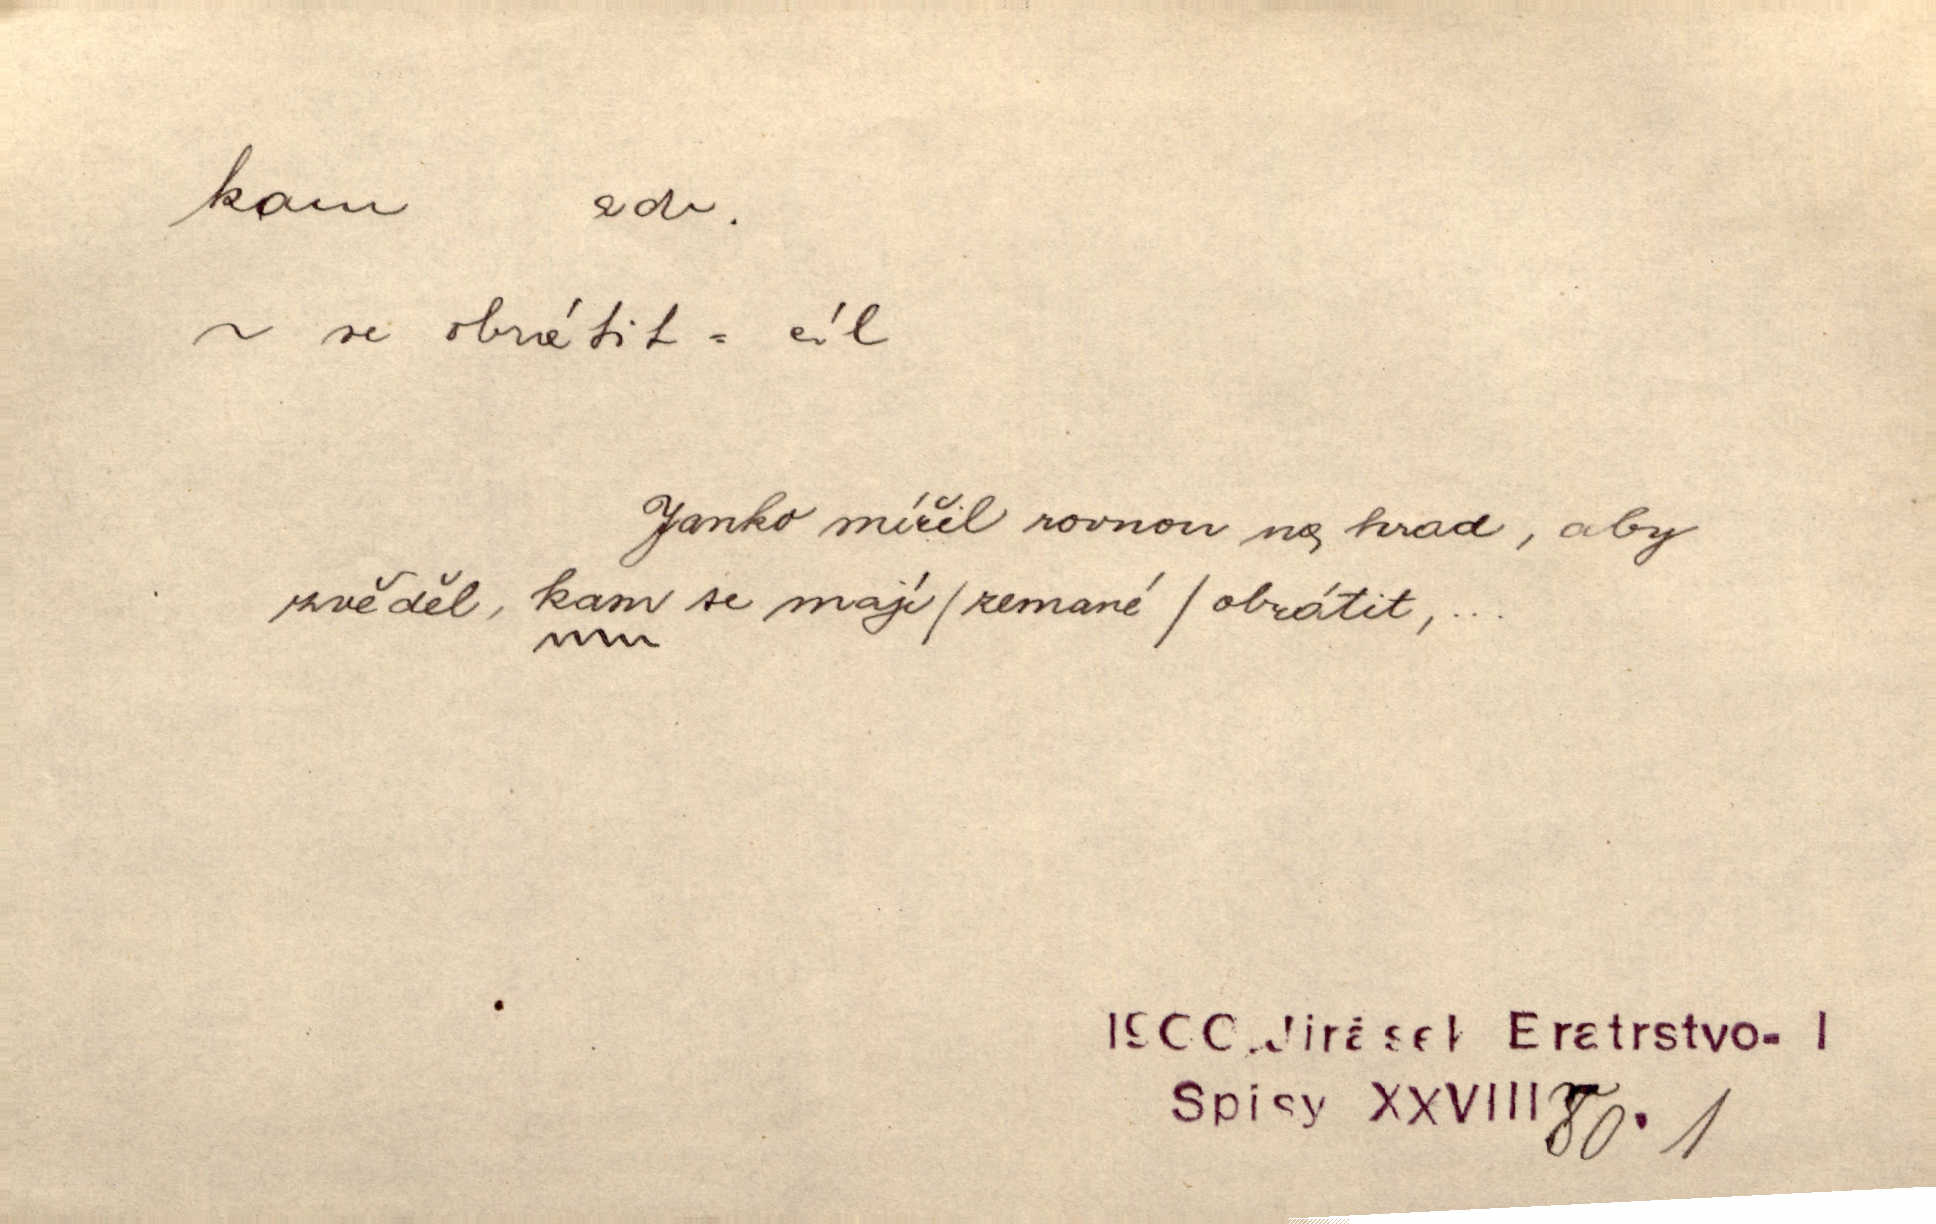 kam adv.
~ se obrátit = cíl
Janko mířil rovnou na hrad, aby
zvěděl, kam se mají /zemané/ obrátit, ...
1900 Jirásek Bratrstvo- I
Spisy XXVIII 80. 1